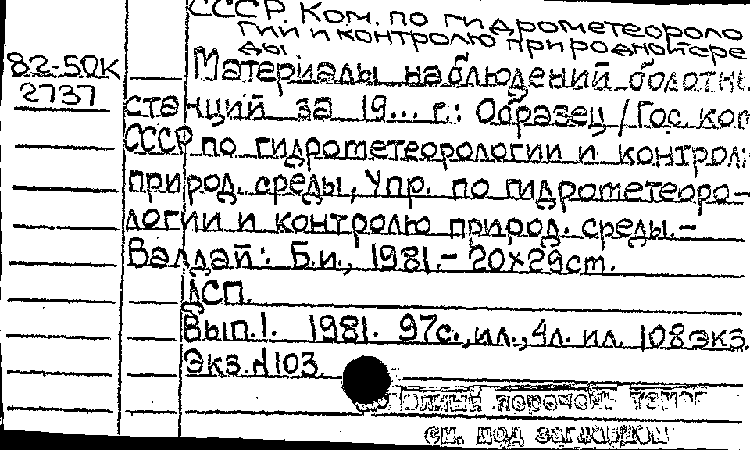 СССР. Ком. по гидрометеороло
гии и контролю природной сре
ды
82-50К
2737
Материалы наблюдений болотн.
станций за 19... г.: Образец / Гос. ком
СССР по гидрометеорологии и контрол
природ. среды, Упр. по гидрометеоро-
логии и контролю природ. среды.-
Валдай: Б.и., 1981.- 20×29cm.
ДСП.
Вып.1. 1981. 97с.,ил.,4л. ил. 108экз.
Экз.N103.
полный перечень
см. под заглавием